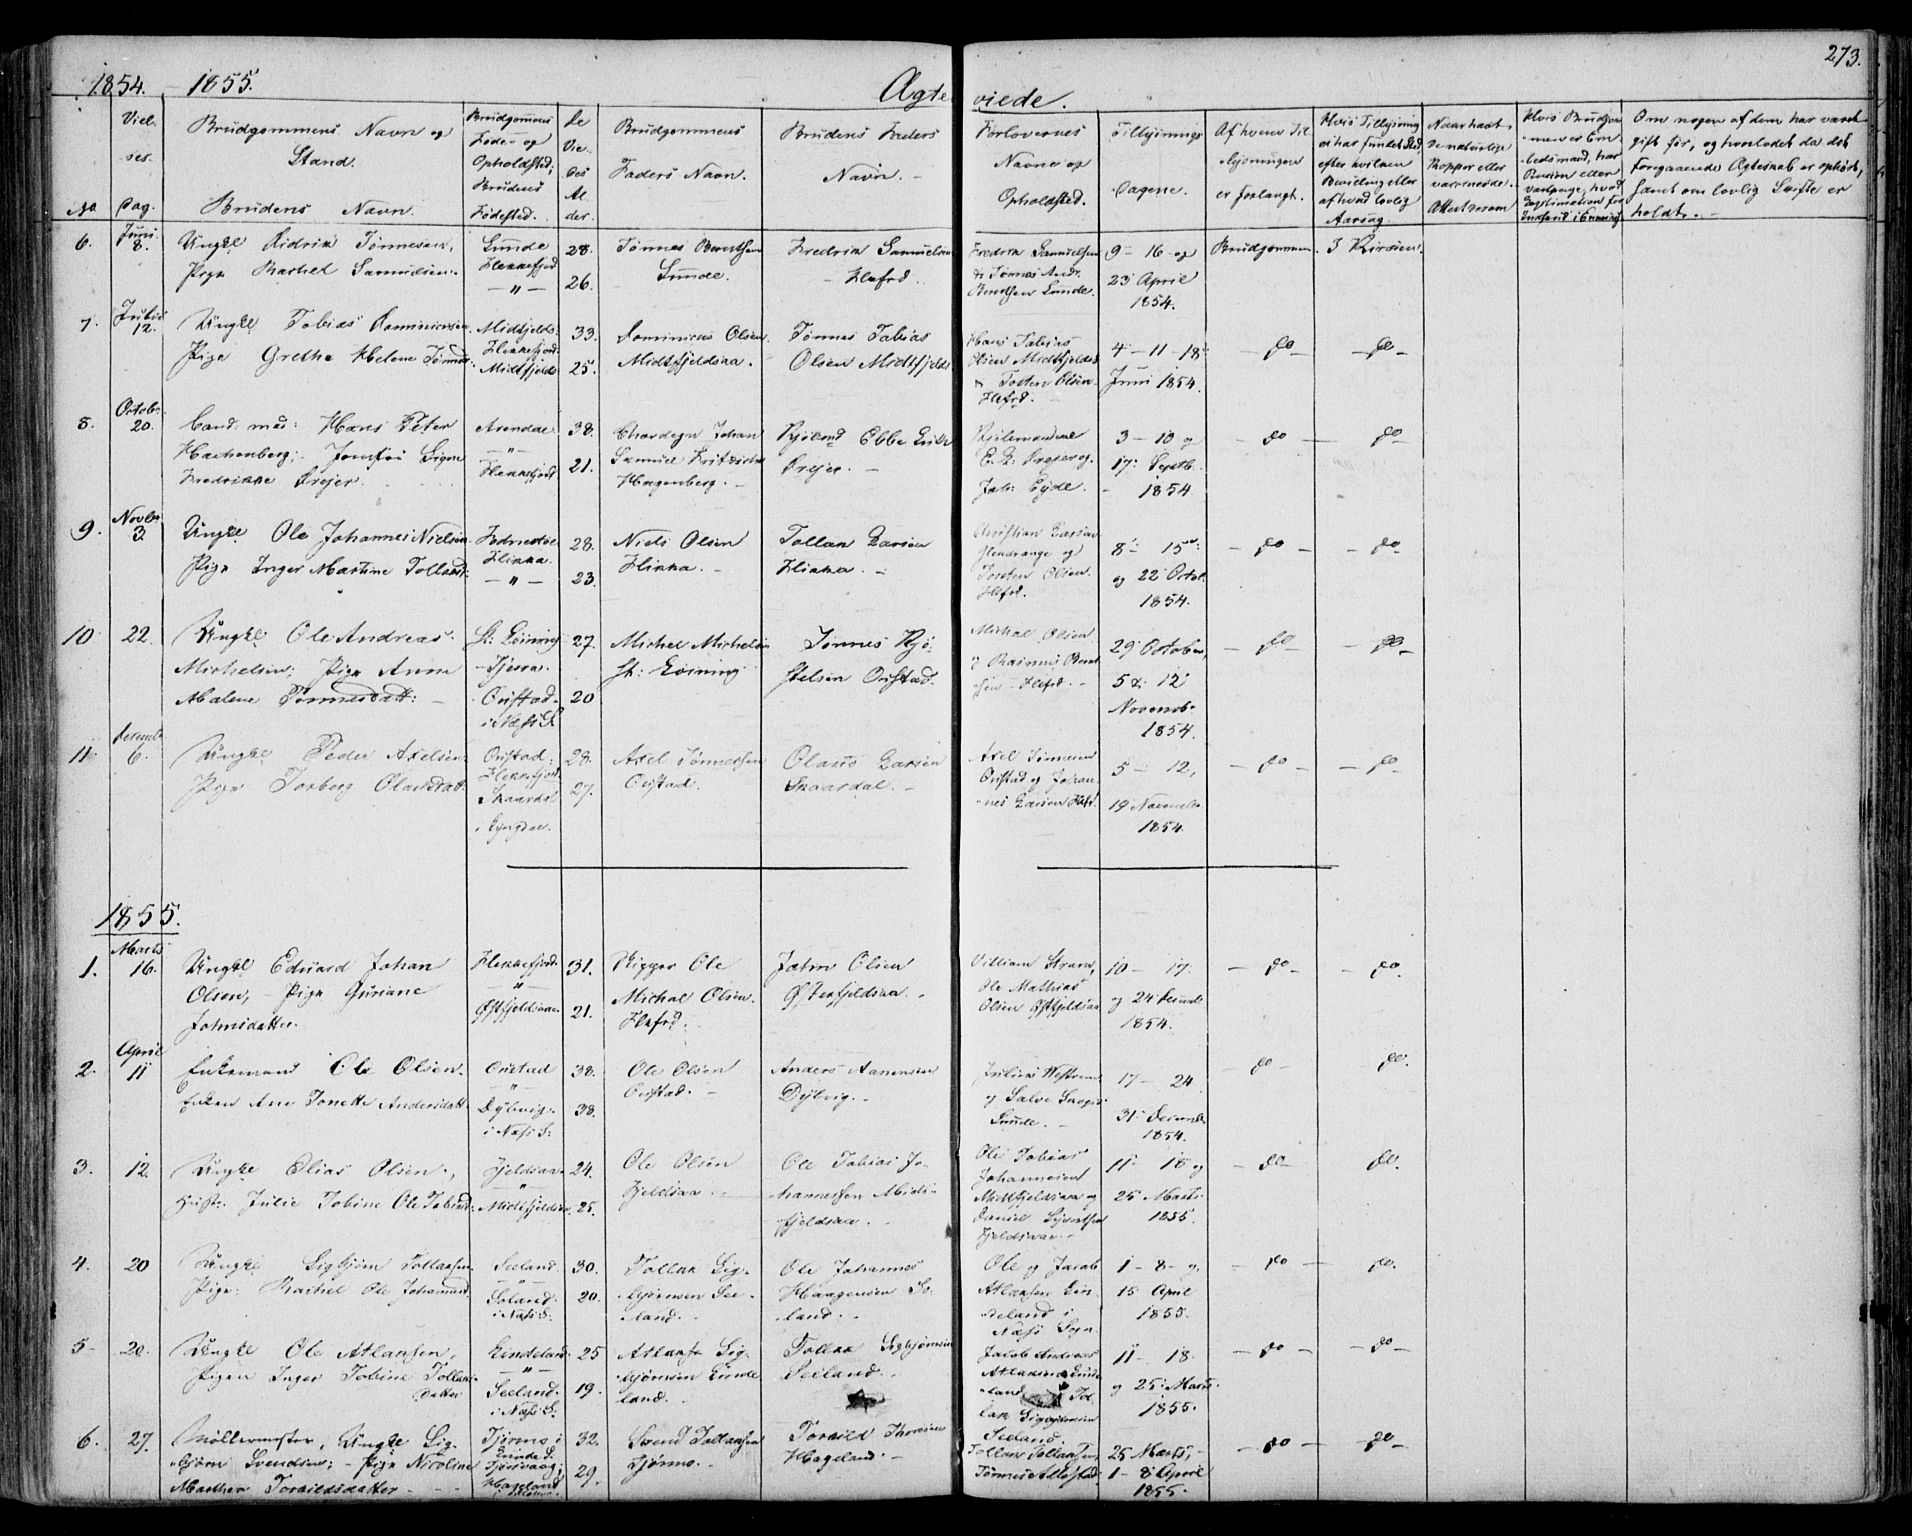 1854. – 1855.
Ægte
viede.
273.
No
Viel-
ses-
Dag.
Brudgommens Navn og
Stand.
Brudens Navn.
Brudgommens
Føde- og
Opholdsted,
Brudens
Fødested.
De
Vie-
des
Al-
der.
Brudgommens
Faders Navn.
Brudens Faders
Navn.
Forlovernes
Navne og
Opholdsted.
Tillysnings
Dagene.
Af hvem Til-
lysningen
er forlangt.
Hvis Tillysning
ei har fundet sted,
efter hvilken
Bevilling eller
af hvad lovlig
Aarsag.
Naar havt
de naturlige
Kopper eller
vaccinerede.
Attest derom
Hvis Brudgom-
men er Em-
bedsmand, har
Pension eller
vartpenge, hvad
Legitimation for
Indskud i Enkekassen
Om nogen af dem har været
gift før, og hvorledet da det
foregaaende Ægteskab er ophørt,
samt om lovlig Skifte er
holdt.
6. Juni 8.
Ungkl Didrik Tønnesen,
Pige Rachel Samuelsen.
Sunde
Flekkefjord
– " –
28.
26.
Tønnes Berntsen
Sunde.
Fredrik Samuelsen
Flefrd.
Fredrik Samuelsen
& Tønnes Andr.
Berntsen Sunde.
9 – 16 – og
23 April
1854.
Brudgommen.
3 Kirsten.
7. Julii 12.
Ungkl Tobias Dominicusen
Pige Grethe Helene Tønnes
Midtfjelds.
Flekkefjord.
Midtfjelds
33.
25.
Dominicus Olsen
Midtfjeldsaa.
Tønnes Tobias
Olsen Midtfjelds
Hans Tobias
Olsen Midtfjelds
& Tosten Olsen
Flefrd.
4 – 11 – 18
Juni 1854.
– do –
– do –
8. Octobr 20.
Cand. med: Hans Peter
Hachenberg; Jomfru Signe
Fredrikke Dreyer.
Arendal
– " –
Flekkefjord
38.
21.
Chordegn Johan
Samuel
Hagenberg.
Ebbe
Dreyer.
E. K. Dreyer og
Joh: Eyde.
3 – 10 og
17: Septb.
1854
– do –
– do –
9. Novbr 3.
Ungkl Ole Johannes Nielsen
Pige Inger Martine Tollaks:
Flikka.
– " –
28.
23.
Niels Olsen
Flikka.
Tollak Larsen
Flikka.
Christian Larsen
og
Torsten Olsen
Flefrd.
8 – 15
og 22 Octob.
1854.
– do –
– do –
10. 22.
Ungkl Ole Andreas
Michelsen; Pige Anne
Malene Tønnesdatt:
St: Løining
Tjersaa.
Ovistad
i Næss S.
27.
20
Michel Michelsen
St: Løining
Tønnes Kjø-
stelsen Ovistad.
Michal Olsen
& Rasmus Bernt-
sen Flefrd.
29 October,
5 & 12
Novemb.
1854.
– do –
– do –
11. Decemb 6.
Ungkl Peder Axelsen
Pige Torborg Olausdatt.
Ovistad;
Flekkefjord
Skaardal
i Lyngdal
28.
27.
Axel Tønnessen
Ovistad.
Olaus Larsen
Skaardal.
Axel Tønnesen
Ovistad og Johan-
nes Larsen Flefrd.
5 – 12,
19 Novembr
1854.
– do –
– do –
1855.
1. Marts 16.
Ungkl Eduard Johan
Olsen, – Pige Guriane
Johnsdatter.
Flekkefjord.
"
Østfjeldsaa.
31.
21.
Rigger Ole
Michal Olsen.
Flefrd.
John Olsen
Østerfjeldsaa.
Villiam Strand,
Ole Mathias
Olsen Østfjeldsaa
10 – 17.
og 24 Decemb
1854.
– do –
– do.
2. April 11
Enkemand Ole Olsen.
Enken Ane Tonette Andersdatt.
Ovistad
– " –
Dybvig
i Næss S:
38.
38.
Ole Olsen
Ovistad.
Anders Aanensen
Dybvig.
Julius
& Salve
Sunde.
17 – 24.
31 Decemb
1854.
do –
do.
3. 12.
Ungkl Elias Olsen,
Julie Tobine Ole Tobiasd:
Fjeldsaa
– " –
Midtfjeldsaa
24.
25.
Ole Olsen
Fjeldsaa.
Ole Tobias Jo-
hannessen Midt-
fjeldsaa.
Ole Tobias
Johannesen
Midtfjeldsaa og
Daniel Syvertsen
Fjeldsaa.
11 – 18 og
25 Marts.
1855.
– do –
do.
4. 20
Ungkl Sigbjørn Tollaksen.
Pige: Rachel Ole Johannesd.
Seeland.
– " –
Soland
i Næss S:
30.
20.
Tollak Sig-
bjørnsen See-
land.
Ole Johannes
Haagensen So-
land.
Ole og Jacob
Atlaksen Lin-
deland i
Næss Sogn
1 – 8 – og
15 April
1855.
– do –
do.
5. 20.
Ungkl Ole Atlaksen,
Pigen Inger Tobine Tollaks
datter
Lindeland.
"
Seeland
i Næss S:
25
19.
Atlak Sig-
bjørnsen Linde-
land.
Tollak Sigbjørnsen
Seeland.
Jacob Andreas
Atlaksen Linde-
land, Tol-
lak Sigbjørnsen
Seeland.
11 – 18.
og 25 Marts.
1855.
– do –
– do –
6. 27.
Møllermester, Ungkl Sig-
bjørn Svendsen; – Pige Nicoline
Marthea Torkildsdatter
Tjørmo i
Qvinde S.
Hageland
32.
29.
Svend Tollaksen
Tjørmo.
Torkild Thoresen
Hageland.
Tollak Tollaksen,
25 Marts,
1 – 8 April
1855.
– do –
– do –